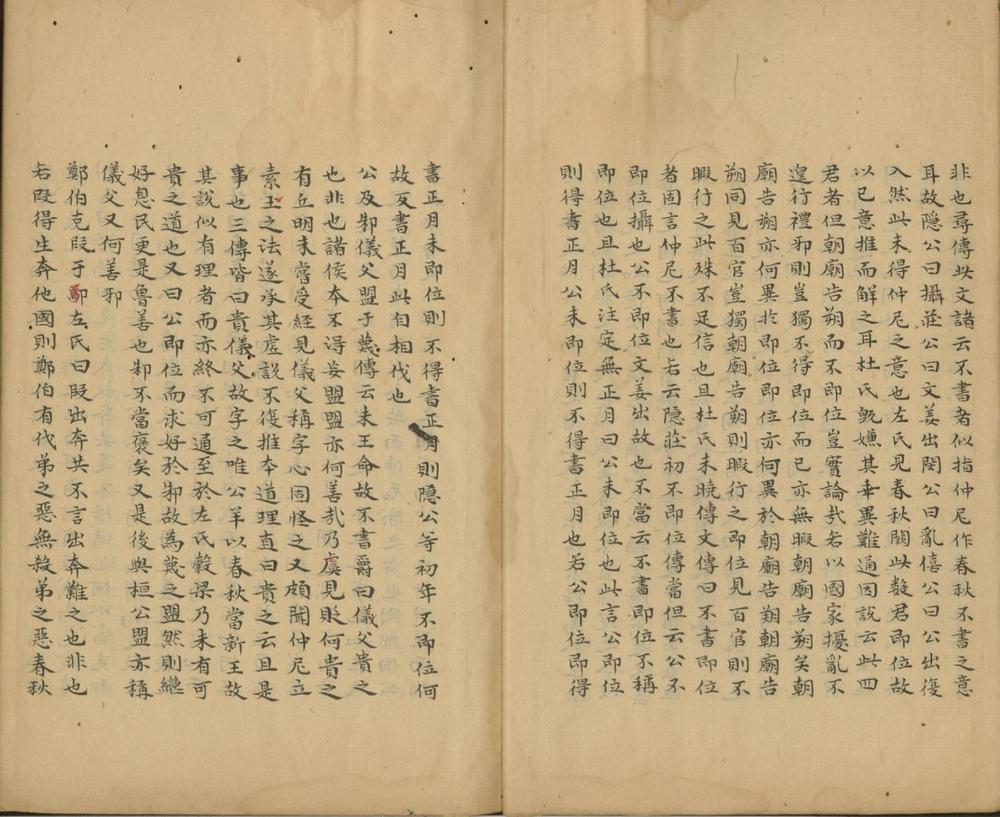 非也尋傳此文諸云不書者似指仲尼作春秋不書之意
耳故隐公曰攝莊公曰文姜出閔公曰亂僖公曰公出復
入然此未得仲尼之意也左氏見春秋闕此數君即位故
以已意推而解之耳杜氏既嫌其乖異難通因説云此四
君者但朝廟告朔而不即位豈實論㢤若以國家擾亂不
遑行禮邪則豈獨不得即位而已亦無暇朝廟告朔矣朝
廟告朔亦何異於即位即位亦何異於朝廟告朔朝廟告
朔同見百官豈獨朝廟告朔則暇行之即位見百官則不
暇行之此殊不足信也且杜氏未曉傳文傳曰不書即位
者固言仲尼不書也若云隐莊初不即位傳當但云公不
即位攝也公不即位文姜出故也不當云不書即位不稱
即位也且杜氏注定無正月曰公未即位也此言公即位
則得書正月公未即位則不得書正月也若公即位即得
書正月未即位則不得書正月則隐公等初年不即位何
故反書正月此自相伐也
公及邾儀父盟于蔑傳云未王命故不書爵曰儀父貴之
也非也諸侯本不得妄盟盟亦何善㢤乃虞見貶何貴之
有丘明未嘗受經見儀父稱字心固怪之又頗聞仲尼立
素王之法遂承其虛説不復推本道理直曰貴之云且是
事也三傳皆曰貴儀父故字之唯公羊以春秋當新王故
其說似有理者而亦終不可通至於左氏榖梁乃未有可
貴之道也又曰公即位而求好於邾故為蔑之盟然則繼
好息民更是魯善也邾不當褒矣又是後與桓公盟亦稱
儀父又何善邪
鄭伯克段于鄢左氏曰段出奔共不言出奔難之也非也
若段得生奔他國則鄭伯有伐弟之惡無殺弟之惡春秋